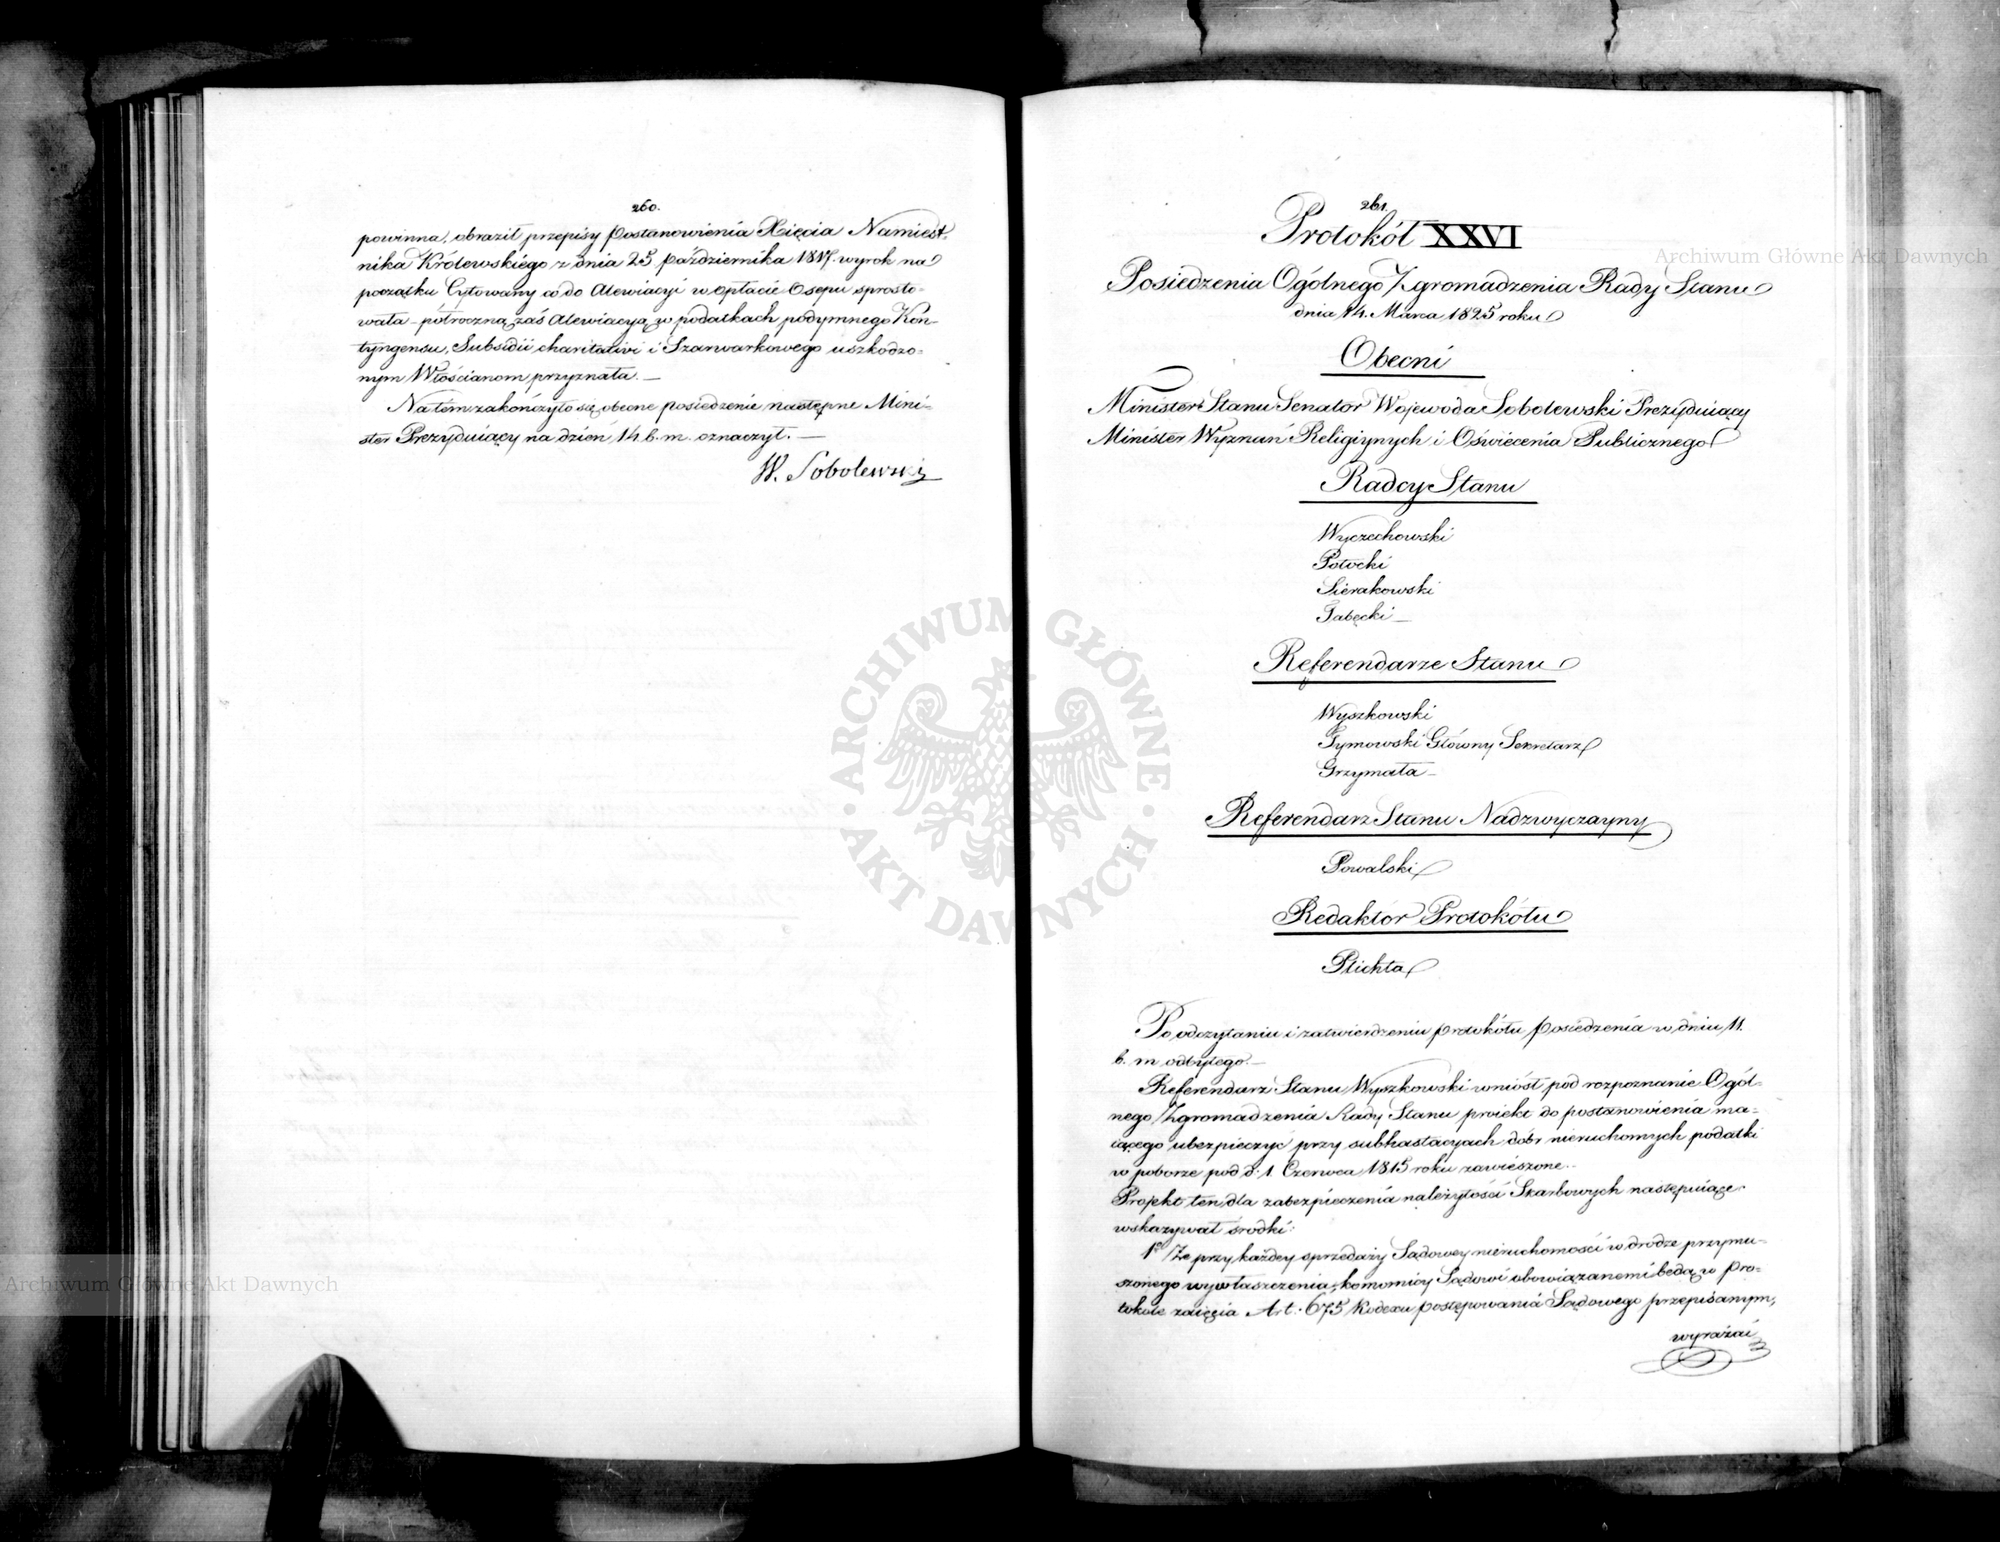 260.
powinna, obraził przepisy Postanowienia Xięcia Namiest-
nika Królewskiego z dnia 25 października 1817. wyrok na
początku Cytowany co do Alewiacyi w opłacie Osepu sprosto-
wała – półroczną zaś Alewiacyą w podatkach podymnego Kon-
tyngensu, Subsidii charitativi i Szarwarkowego uszkodzo-
nym Włościanom przyznała. —
Na tém zakończyło się obecne posiedzenie następne Mini-
ster Prezyduiący na dzień 14 b. m. oznaczył. —
W. Sobolewski
261.
Protokół XXVI
Posiedzenia Ogólnego Zgromadzenia Rady Stanu
dnia 14. Marca 1825 roku
Obecni
Minister Stanu Senator Wojewoda Sobolewski Prezyduiący
Minister Wyznań Religiynych i Oświecenia Publicznego
Radcy Stanu
Wyczechowski
Potocki
Sierakowski
Tabęcki —
Referendarze Stanu
Wyszkowski
Tymowski Główny Sekretarz
Grzymała —
Referendarz Stanu Nadzwyczayny
Powalski
Redaktor Protokółu
Plichta
Po odczytaniu i zatwierdzeniu protokółu posiedzenia w dniu 11.
b. m odbytego. —
Referendarz Stanu Wyszkowski wniósł pod rozpoznanie Ogól-
nego Zgromadzenia Rady Stanu proiekt do postanowienia ma-
iącego ubezpieczyć przy subhastacyach dóbr nieruchomych podatki
w poborze pod d. 1 Czerwca 1815 roku zawieszone. —
Projekt ten dla zabezpieczenia należytości Skarbowych następuiące
wskazywał środki:
1º Że przy każdey sprzedaży Sądowey nieruchomości w drodze przymu-
szonego wywłaszczenia, komornicy Sądowi obowiązanemi będą w pro-
tokole zaięcia Art. 675 Kodexu postępowania Sądowego przepisanym,
wyrażać
Archiwum Główne Akt Dawnych
Archiwum Główne Akt Dawnych
ARCHIWUM GŁÓWNE · AKT DAWNYCH ·